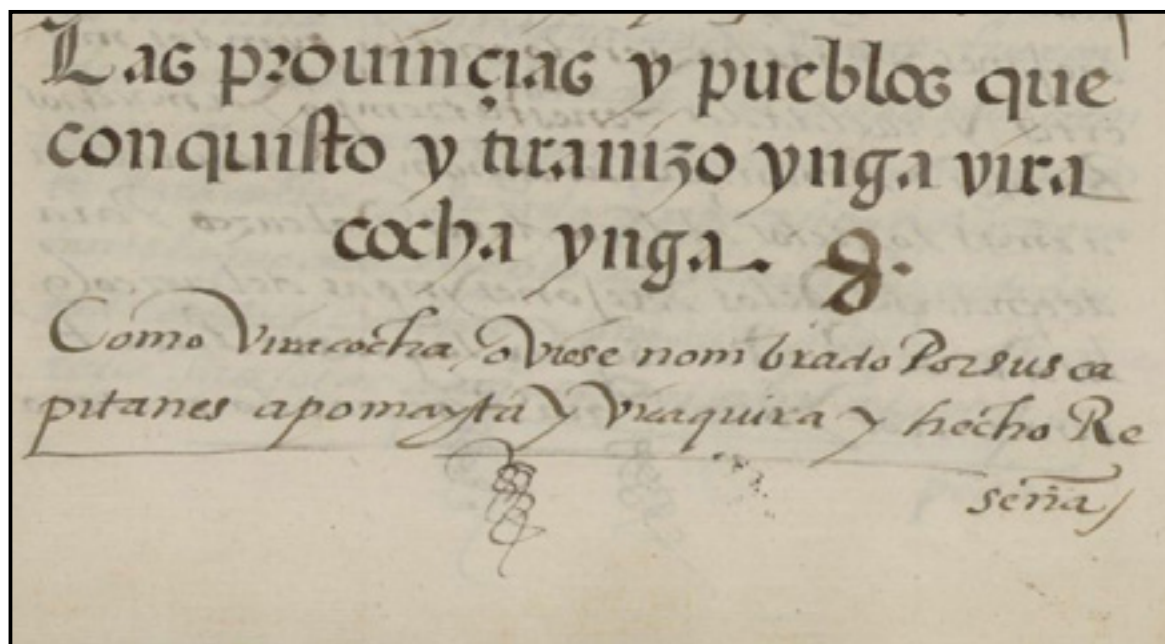 Las prouinçias y pueblos que
conquisto y tiranizo ynga vira
cocha ynga.
Como Viracocha oviese nombrado Por sus ca
pitanes apomayta y Vicaquira y hecho Re
seña